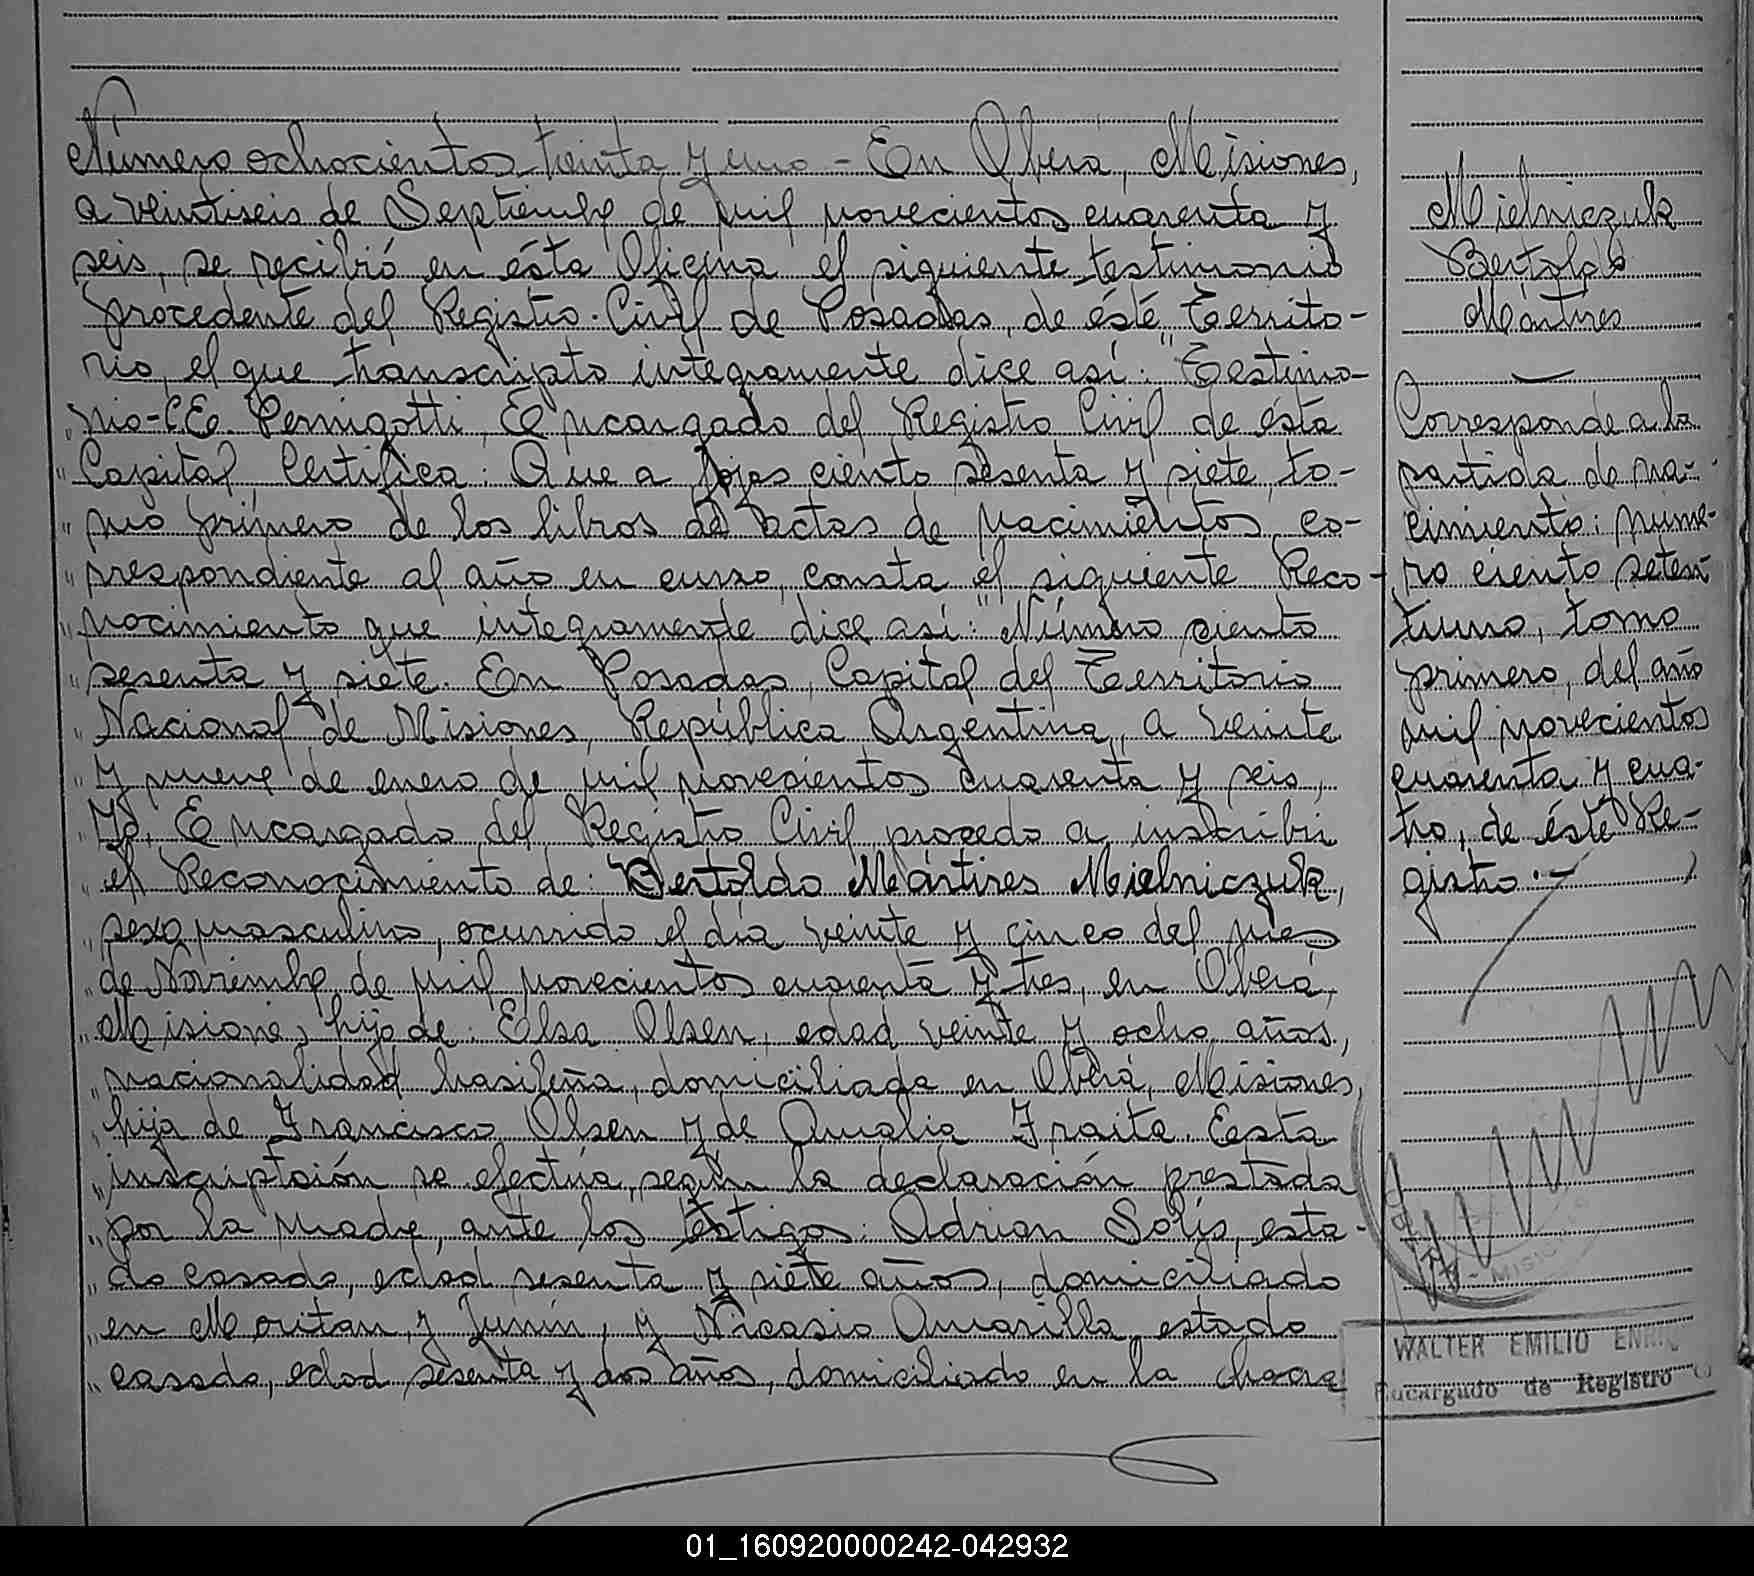 Número ochocientos treinta y uno - En Oberá, Misiones,
a veintiseis de Septiembre de mil novecientos cuarenta y
seis, se recibió en ésta Oficina el siguiente testimonio
procedente del Registro Civil de Posadas, de éste Territo-
rio, el que transcripto integramente dice así: "Testimo-
nio-C.E. Pernigotti, Encargado del Registro Civil de ésta
" Capital, Certifica: Que a fojas ciento sesenta y siete, to-
" mo primero de los libros de actas de nacimientos, co-
" rrespondiente al año en curso, consta el siguiente Reco-
" nocimiento que integramente dice así: "Número ciento
" sesenta y siete. En Posadas, Capital del Territorio
" Nacional de Misiones, República Argentina, a veinte
" y nueve de enero de mil novecientos cuarenta y seis,
" Yo, Encargado del Registro Civil, procedo a inscribir
" el Reconocimiento de: Bertoldo Mártires Mielniczuk,
" sexo masculino, ocurrido el día veinte y cinco del mes
" de Noviembre de mil novecientos cuarenta y tres, en Oberá,
" Misiones, hijo de: Elsa Olsen, edad veinte y ocho años,
" nacionalidad brasileña, domiciliada en Oberá, Misiones,
" hija de Francisco Olsen y de Amalia Fraita. Esta
" inscripción se efectúa, según la declaración prestada
" por la madre, ante los testigos: Adrian Solís, esta-
" do casado, edad sesenta y siete años, domiciliado
" en Moritan y Junín, y Nicasio Amarilla, estado
" casado, edad sesenta y dos años, domiciliado en la chacra
Mielniczuk
Bertoldo
Mártires
Corresponde a la
partida de na-
cimiento: núme-
ro ciento seten-
tiuno, tomo
primero, del año
mil novecientos
cuarenta y cua-
tro, de éste Re-
gistro.-
WALTER EMILIO
Encargado de Registro
01_160920000242-042932